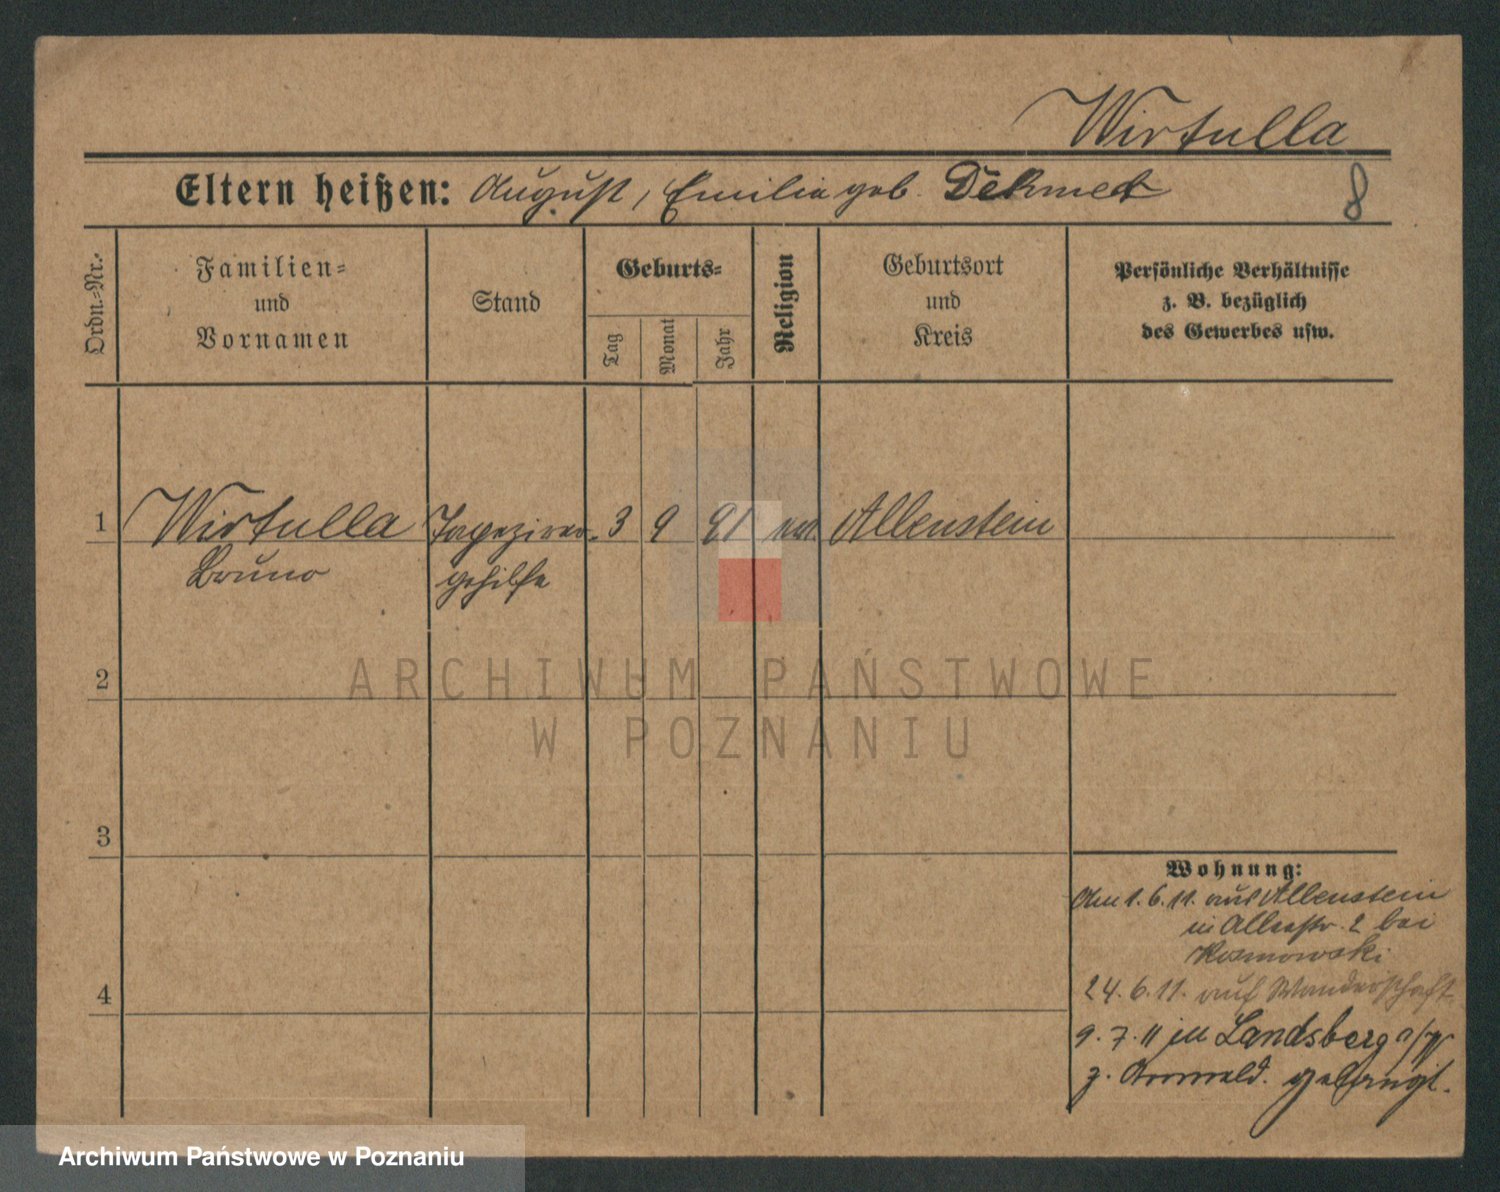 Wirtulla
Eltern heißen: August, Emilia geb. Dehmet
8
Ordn.-Nr.
Familien-
und
Vornamen
Stand
Geburts-
Tag
Monat
Jahr
Religion
Geburtsort
und
Kreis
Persönliche Verhältnisse
z. B. bezüglich
des Gewerbes usw.
1 Wirtulla Tapezirer- 3 9 91 Allenstein
Bruno gehilfe
2
3
4
Wohnung:
Am 1.6.11. aus Allenstein
in Alleestr. 2 bei
24.6.11. auf Wanderschaft
9.7.11 in Landsberg a/W
z. Anmeld. gelangt.
ARCHIWUM PAŃSTWOWE
W POZNANIU
Archiwum Państwowe w Poznaniu